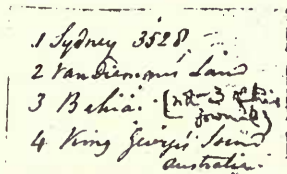 1 Sydney 3528
2 VanDiemens' Land
3 Bahia. (not 3 of this
journal)
4 King Georges' Sound
Australia.